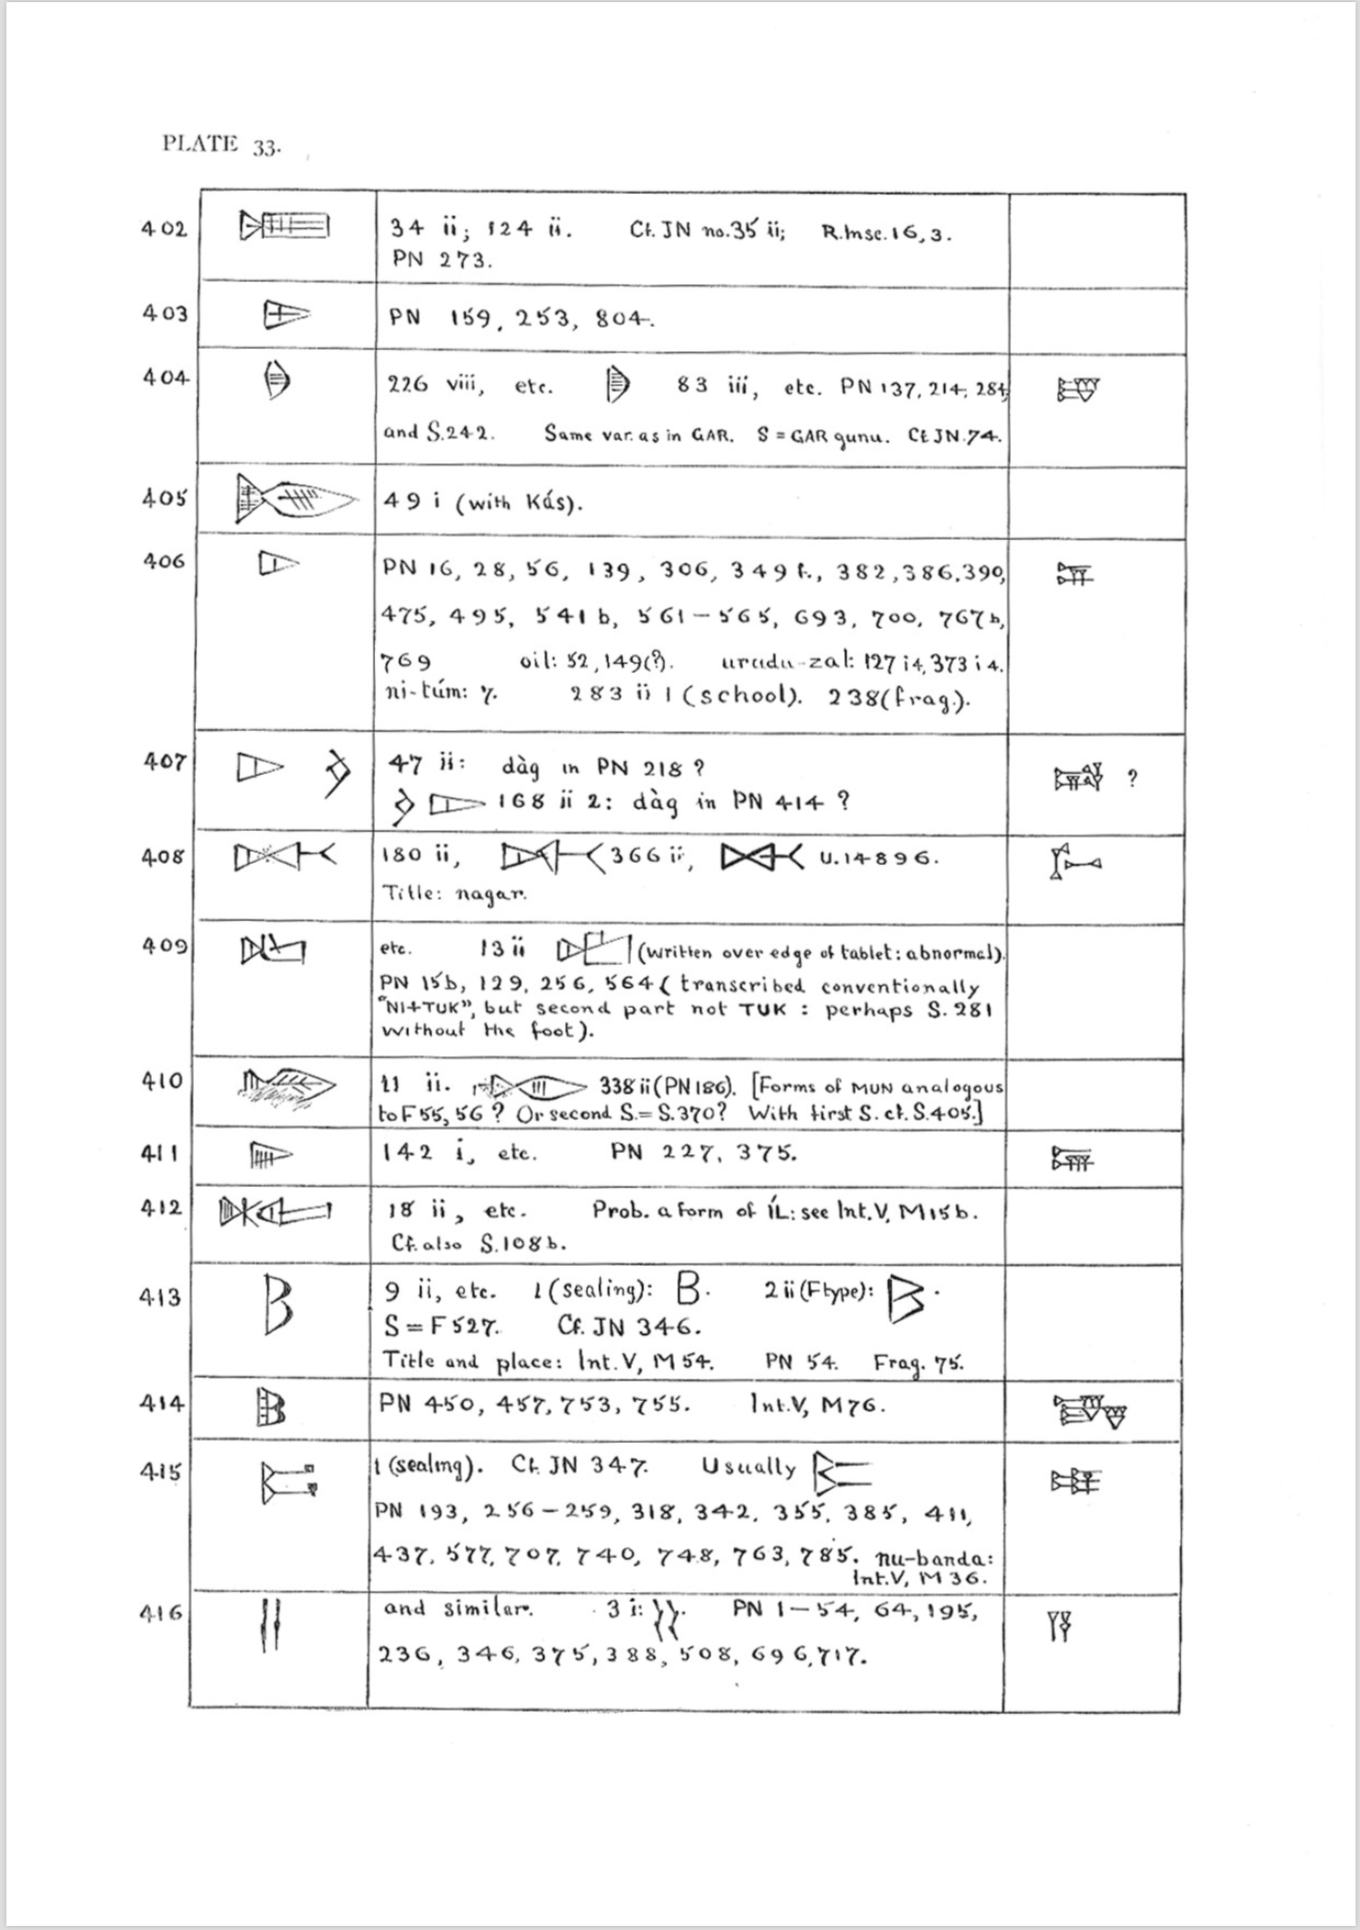 PLATE 33.
402
34 ii; 124 ii. Cf. JN no. 35 ii; R.Insc. 16, 3.
PN 273.
403
PN 159, 253, 804.
404
226 viii, etc. 83 iii, etc. PN 137, 214, 284,
and S.242. Same var. as in GAR. S = GAR gunu. Cf JN. 74.
405
49 i (with Kás).
406
PN 16, 28, 56, 139, 306, 349 f., 382, 386, 390,
475, 495, 541 b, 561 – 565, 693, 700, 767 b,
769 oil: 52, 149(?). urudu-zal: 127 i 4, 373 i 4.
ni-túm: 7. 283 ii 1 (school). 238 (frag.).
407
47 ii: dàg in PN 218 ?
168 ii 2: dàg in PN 414 ?
?
408
180 ii, 366 ii, U. 14896.
Title: nagar.
409
etc. 13 ii (written over edge of tablet: abnormal).
PN 15b, 129, 256, 564 ( transcribed conventionally
"NI+TUK", but second part not TUK : perhaps S. 281
without the foot).
410
11 ii. 338 ii (PN 186). [Forms of MUN analogous
to F 55, 56 ? Or second S. = S.370? With first S. cf. S.405.]
411
142 i, etc. PN 227, 375.
412
18 ii, etc. Prob. a form of ÍL: see Int. V, M 15 b.
Cf. also S. 108 b.
413
9 ii, etc. 1 (sealing): 2 ii (F type):
S = F 527. Cf. JN 346.
Title and place: Int. V, M 54. PN 54. Frag. 75.
414
PN 450, 457, 753, 755. Int. V, M 76.
415
1 (sealing). Cf. JN 347. Usually
PN 193, 256 – 259, 318, 342, 355, 385, 411,
437, 577, 707, 740, 748, 763, 785. nu-banda:
Int. V, M 36.
416
and similar. 3 i: PN 1 – 54, 64, 195,
236, 346, 375, 388, 508, 696, 717.